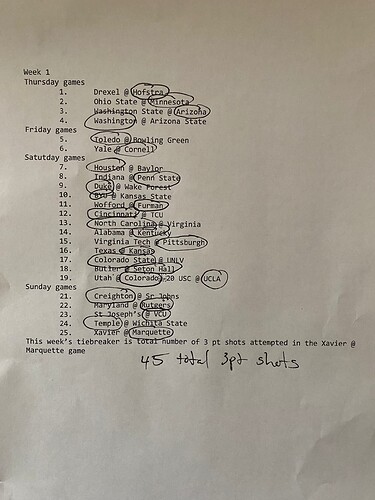 Week 1
Thursday games
1. Drexel @ Hofstra
2. Ohio State @ Minnesota
3. Washington State @ Arizona
4. Washington @ Arizona State
Friday games
5. Toledo @ Bowling Green
6. Yale @ Cornell
Satutday games
7. Houston @ Baylor
8. Indiana @ Penn State
9. Duke @ Wake Forest
10. BYU @ Kansas State
11. Wofford @ Furman
12. Cincinnati @ TCU
13. North Carolina @ Virginia
14. Alabama @ Kentucky
15. Virginia Tech @ Pittsburgh
16. Texas @ Kansas
17. Colorado State @ UNLV
18. Butler @ Seton Hall
19. Utah @ Colorado 20 USC @ UCLA
Sunday games
21. Creighton @ St Johns
22. Maryland @ Rutgers
23. St Joseph's @ VCU
24. Temple @ Wichita State
25. Xavier @ Marquette
This week's tiebreaker is total number of 3 pt shots attempted in the Xavier @
Marquette game
45 total 3pt shots